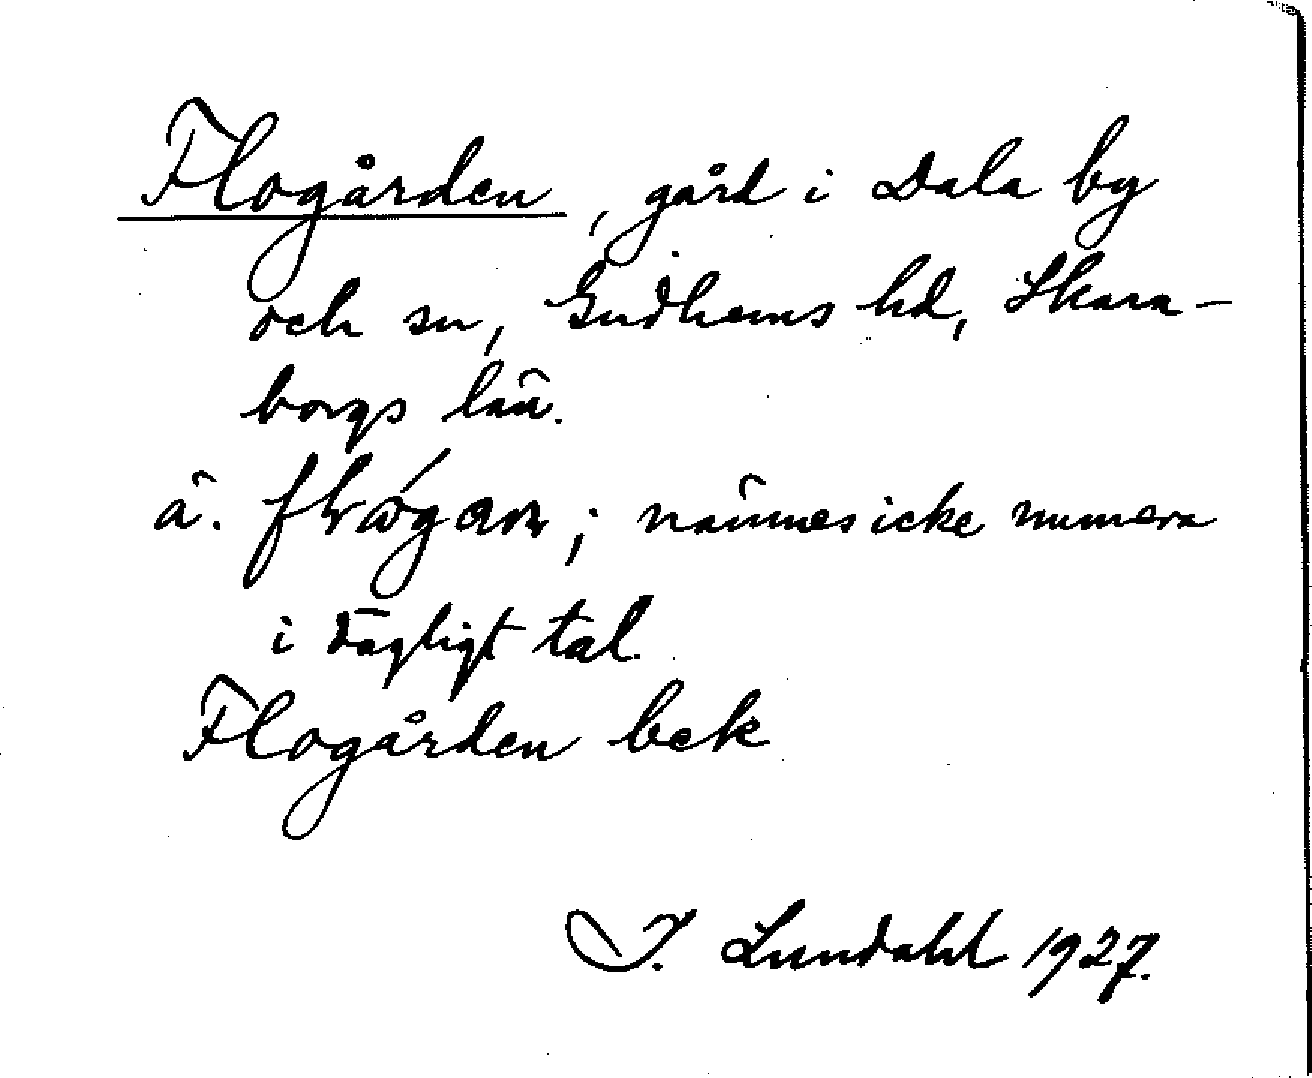 Flogården, gård i Dala by
och sn, Gudhems hd, Skara-
borgs län.
ä. ; nämnes icke numera
i dagligt tal.
Flogården bek
I. Lundahl 1927.